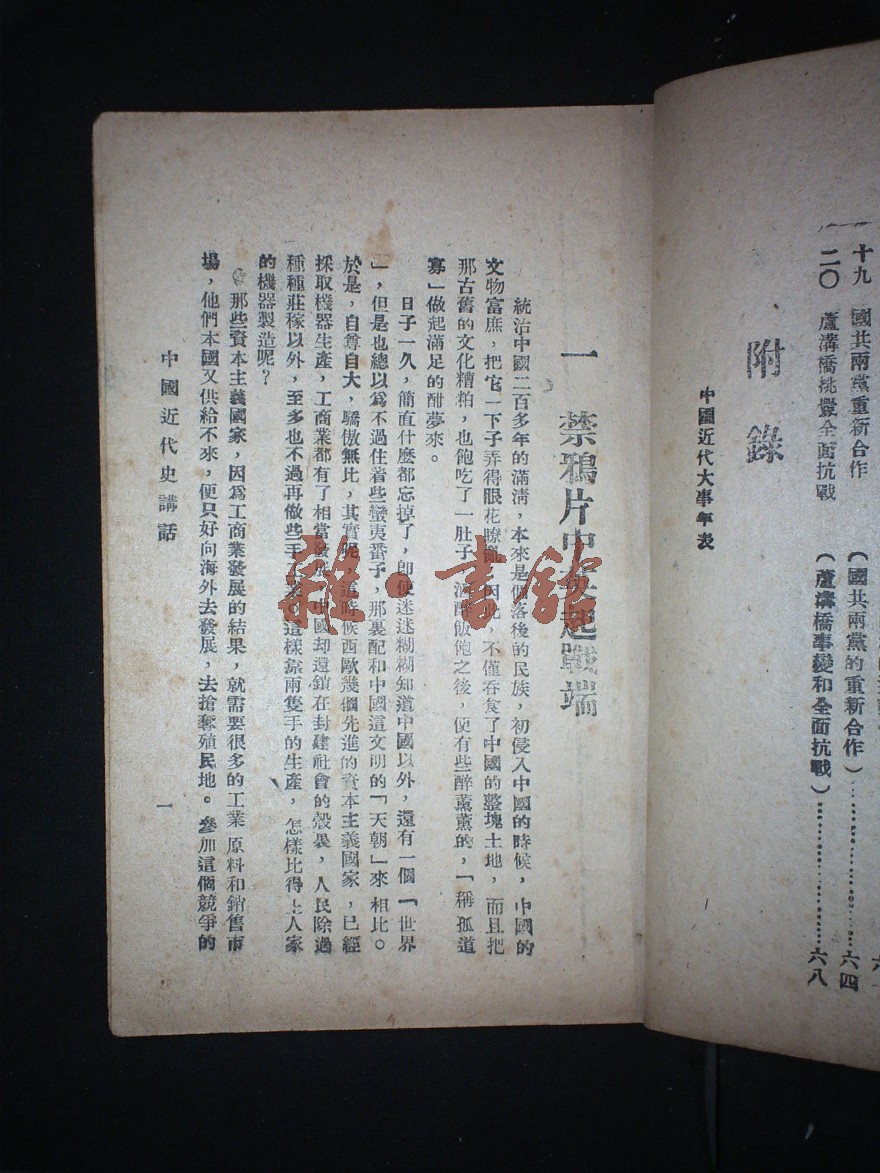 十九　國共兩黨重新合作　(國共兩黨的重新合作)……………六四
二〇　蘆溝橋挑釁全面抗戰　(蘆溝橋事變和全面抗戰)……………六八
附錄
中國近代大事年表
一　禁鴉片中英起戰端
統治中國二百多年的滿淸，本來是個落後的民族，初侵入中國的時候，中國的
文物富庶，把它一下子弄得眼花瞭亂，因此，不僅吞食了中國的整塊土地，而且把
那古舊的文化糟粕，也飽吃了一肚子，酒醉飯飽之後，便有些醉薰薰的，「稱孤道
寡」做起滿足的酣夢來。
日子一久，簡直什麽都忘掉了，卽使迷迷糊糊知道中國以外，還有一個「世界
」，但是也總以爲不過住着些蠻夷番子，那裏配和中國這文明的「天朝」來相比。
於是，自尊自大，驕傲無比，其實呢，這時候西歐幾個先進的資本主義國家，已經
採取機器生產，工商業都有了相當發展，中國却還鎖在封建社會的殼裏，人民除過
種種莊稼以外，至多也不過再做些手工業。這樣靠兩隻手的生產，怎樣比得上人家
的機器製造呢？
那些資本主義國家，因爲工商業發展的結果，就需要很多的工業原料和銷售市
場，他們本國又供給不來，便只好向海外去發展，去搶奪殖民地。參加這個競爭的
中國近代史講話
一
雜·書館